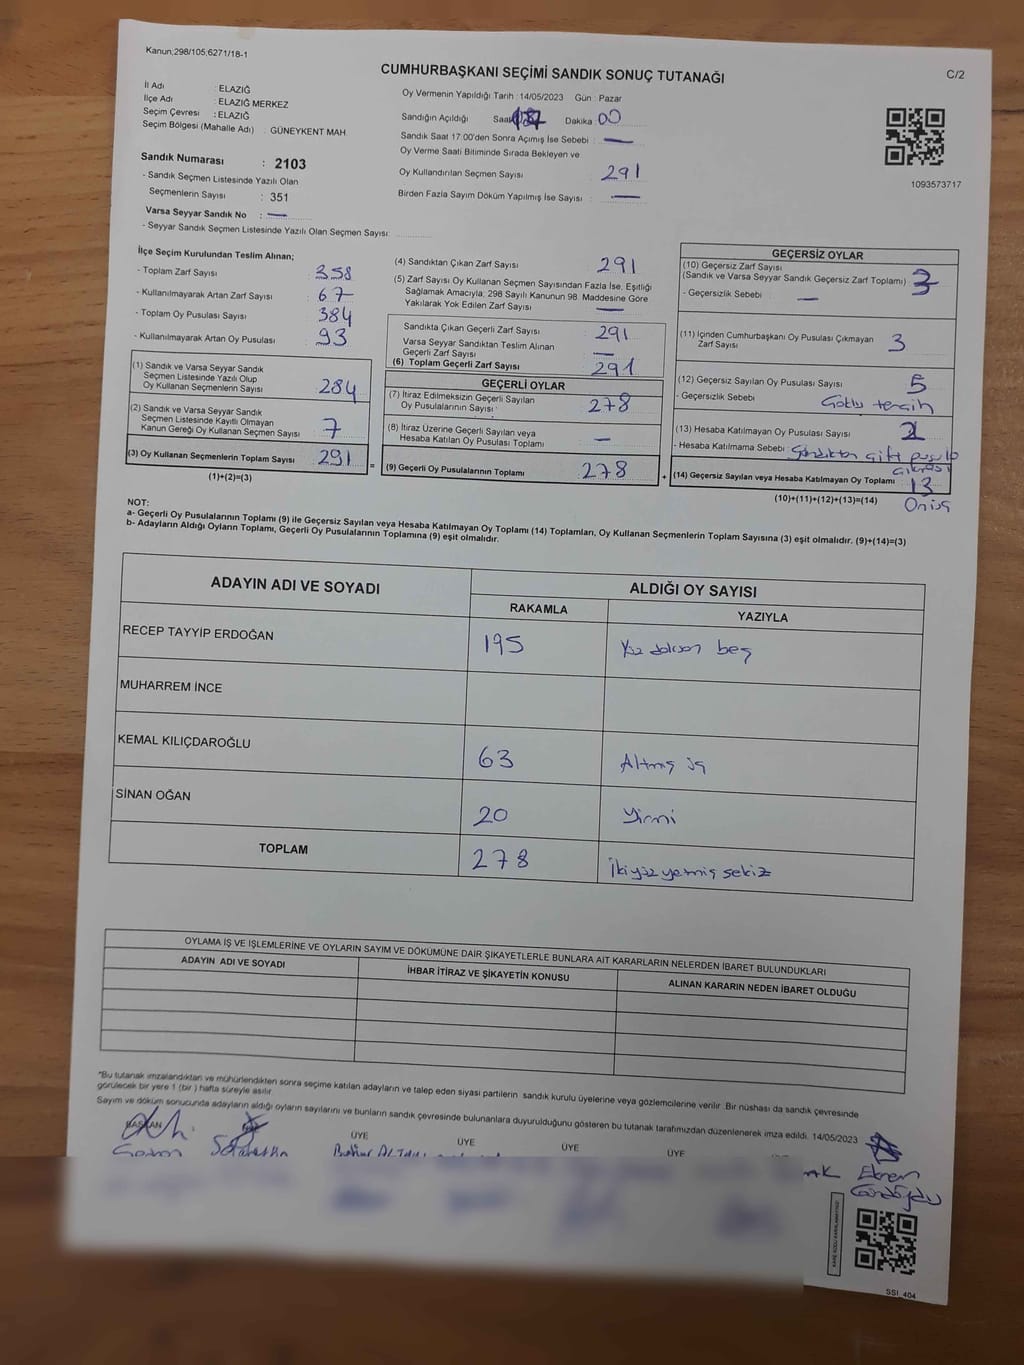 Kanun;298/105;6271/18-1
C/2
CUMHURBAŞKANI SEÇİMİ SANDIK SONUÇ TUTANAĞI
İl Adı : ELAZIĞ
İlçe Adı : ELAZIĞ MERKEZ
Seçim Çevresi : ELAZIĞ
Seçim Bölgesi (Mahalle Adı) : GÜNEYKENT MAH.
Sandık Numarası : 2103
- Sandık Seçmen Listesinde Yazılı Olan
Seçmenlerin Sayısı : 351
Varsa Seyyar Sandık No : —
- Seyyar Sandık Seçmen Listesinde Yazılı Olan Seçmen Sayısı:
Oy Vermenin Yapıldığı Tarih : 14/05/2023 Gün : Pazar
Sandığın Açıldığı Saat Dakika 00
Sandık Saat 17:00'den Sonra Açımış İse Sebebi : —
Oy Verme Saati Bitiminde Sırada Bekleyen ve
Oy Kullandırılan Seçmen Sayısı 291
Birden Fazla Sayım Döküm Yapılmış İse Sayısı : —
1093573717
İlçe Seçim Kurulundan Teslim Alınan;
- Toplam Zarf Sayısı 358
- Kullanılmayarak Artan Zarf Sayısı : 67
- Toplam Oy Pusulası Sayısı : 384
- Kullanılmayarak Artan Oy Pusulası : 93
(1) Sandık ve Varsa Seyyar Sandık
Seçmen Listesinde Yazılı Olup
Oy Kullanan Seçmenlerin Sayısı : 284
(2) Sandık ve Varsa Seyyar Sandık
Seçmen Listesinde Kayıtlı Olmayan
Kanun Gereği Oy Kullanan Seçmen Sayısı : 7
(3) Oy Kullanan Seçmenlerin Toplam Sayısı 291
(1)+(2)=(3)
=
(4) Sandıktan Çıkan Zarf Sayısı 291
(5) Zarf Sayısı Oy Kullanan Seçmen Sayısından Fazla İse, Eşitliği
Sağlamak Amacıyla; 298 Sayılı Kanunun 98. Maddesine Göre
Yakılarak Yok Edilen Zarf Sayısı : —
Sandıkta Çıkan Geçerli Zarf Sayısı 291
Varsa Seyyar Sandıktan Teslim Alınan
Geçerli Zarf Sayısı —
(6) Toplam Geçerli Zarf Sayısı 291
GEÇERLİ OYLAR
(7) İtiraz Edilmeksizin Geçerli Sayılan
Oy Pusulalarının Sayısı 278
(8) İtiraz Üzerine Geçerli Sayılan veya
Hesaba Katılan Oy Pusulası Toplamı —
(9) Geçerli Oy Pusulalarının Toplamı 278
+
GEÇERSİZ OYLAR
(10) Geçersiz Zarf Sayısı
(Sandık ve Varsa Seyyar Sandık Geçersiz Zarf Toplamı) 3
- Geçersizlik Sebebi —
(11) İçinden Cumhurbaşkanı Oy Pusulası Çıkmayan
Zarf Sayısı 3
(12) Geçersiz Sayılan Oy Pusulası Sayısı 5
- Geçersizlik Sebebi Çoklu tercih
(13) Hesaba Katılmayan Oy Pusulası Sayısı 2
- Hesaba Katılmama Sebebi Sandıktan çift pusula
çıkması
(14) Geçersiz Sayılan veya Hesaba Katılmayan Oy Toplamı 13
(10)+(11)+(12)+(13)=(14) Onüç
NOT:
a- Geçerli Oy Pusulalarının Toplamı (9) ile Geçersiz Sayılan veya Hesaba Katılmayan Oy Toplamı (14) Toplamları, Oy Kullanan Seçmenlerin Toplam Sayısına (3) eşit olmalıdır. (9)+(14)=(3)
b- Adayların Aldığı Oyların Toplamı, Geçerli Oy Pusulalarının Toplamına (9) eşit olmalıdır.
ADAYIN ADI VE SOYADI
ALDIĞI OY SAYISI
RAKAMLA YAZIYLA
RECEP TAYYİP ERDOĞAN 195 Yüz doksan beş
MUHARREM İNCE
KEMAL KILIÇDAROĞLU 63 Altmış üç
SİNAN OĞAN 20 Yirmi
TOPLAM 278 İkiyüz yetmiş sekiz
OYLAMA İŞ VE İŞLEMLERİNE VE OYLARIN SAYIM VE DÖKÜMÜNE DAİR ŞİKAYETLERLE BUNLARA AİT KARARLARIN NELERDEN İBARET BULUNDUKLARI
ADAYIN ADI VE SOYADI İHBAR İTİRAZ VE ŞİKAYETİN KONUSU ALINAN KARARIN NEDEN İBARET OLDUĞU
*Bu tutanak imzalandıktan ve mühürlendikten sonra seçime katılan adayların ve talep eden siyasi partilerin sandık kurulu üyelerine veya gözlemcilerine verilir. Bir nüshası da sandık çevresinde
görülecek bir yere 1 (bir ) hafta süreyle asılır.
Sayım ve döküm sonucunda adayların aldığı oyların sayılarını ve bunların sandık çevresinde bulunanlara duyurulduğunu gösteren bu tutanak tarafımızdan düzenlenerek imza edildi. 14/05/2023
BAŞKAN ÜYE ÜYE ÜYE ÜYE
Ekrem
SSI_404